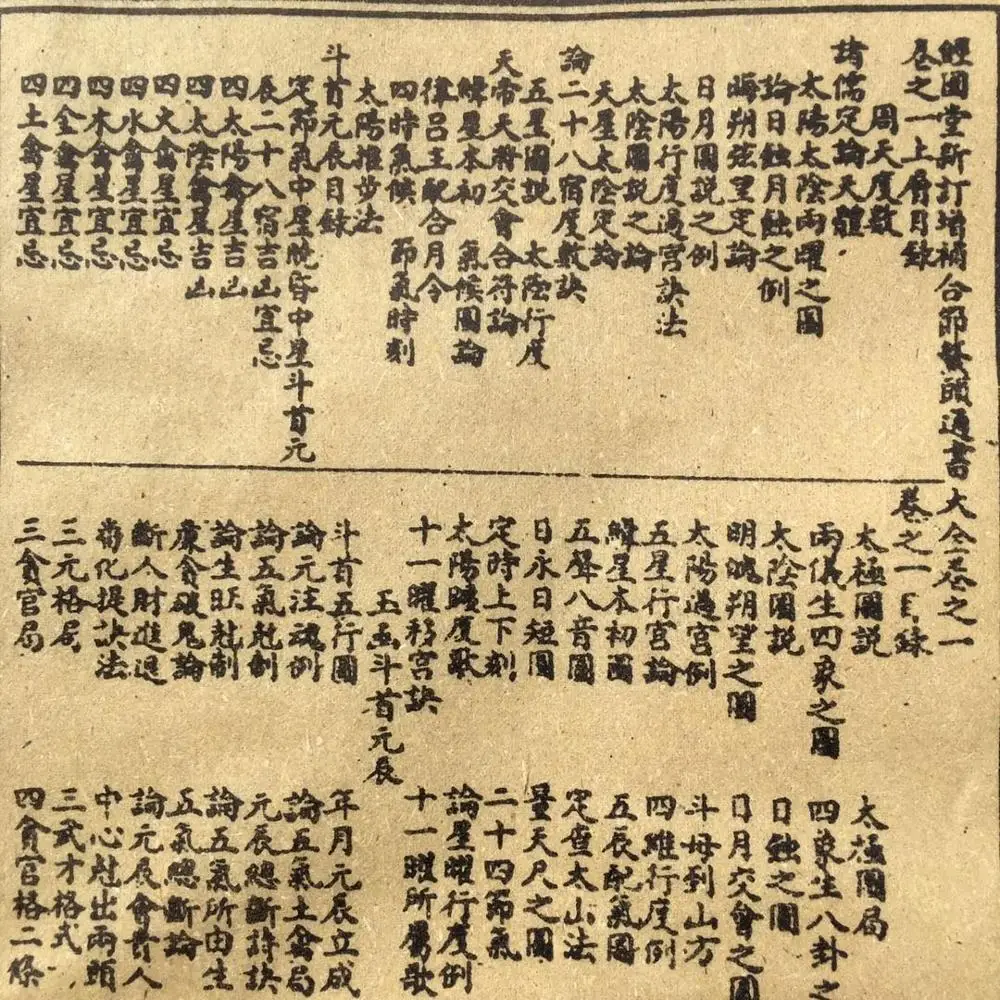 經國堂新訂增補合節鰲頭通書大全卷之一
卷之一上層月錄
周天度數
諸儒定論天體
太陽太陰兩曜之圖
論日蝕月蝕之例
晦朔弦望定論
日月圖說之例
太陽行度過宮訣法
太陰圖說之論
天星太陰定論
論二十八宿度數訣
五星圖說 太陰行度
天帝天將交會合符論
緯星本初 氣候圖論
律呂主配合月令
四時氣候 節氣時刻
太陽推步法
斗首元辰目錄
定節氣中星晥昏中星斗首元
辰二十八宿吉凶宜忌
四太陽禽星吉凶
四太陰禽星吉凶
四火禽星宜忌
四水禽星宜忌
四木禽星宜忌
四金禽星宜忌
四土禽星宜忌
卷之一目錄
太極圖說 太極圖局
兩儀生四象之圖 四象生八卦之
太陰圖說 日蝕之圖
明魄朔望之圖 日月交會之圖
太陽過宮例 斗母到山方
五星行宮論 四維行度例
緯星本初圖 五辰配氣圖
五聲八音圖 定查太山法
日永日短圖 量天尺之圖
定時上下刻 二十四節氣
太陽曈度歌 論星曜行度例
十一曜移宮訣 十一曜所屬歌
玉函斗首元辰
斗首五行圖 年月元辰立成
論元注魂例 論五氣土禽局
論五氣尅制 元辰總斷詳訣
論生旺尅制 論五氣所由生
廉貪破鬼論 五氣總斷論
斷人財進退 論元辰會貴人
喻化提訣法 中心尅出兩頭
三元格局 三武才格式
三貪官局 四貪官格二條